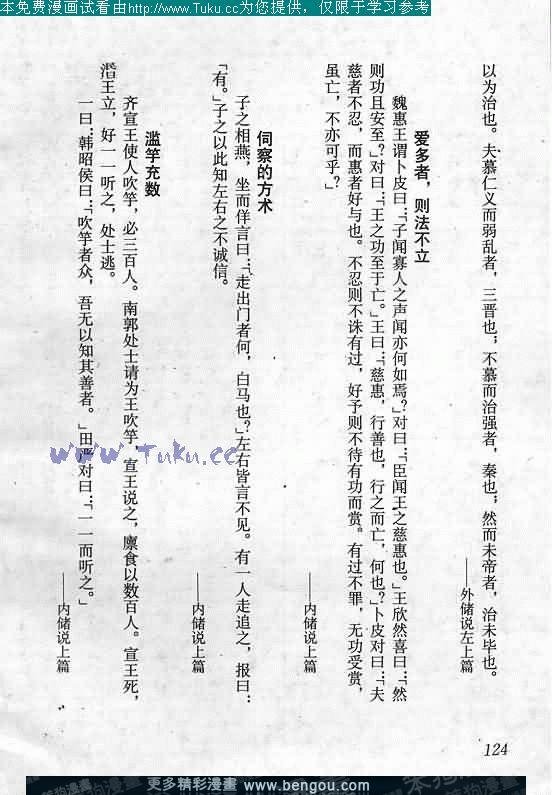 本免费漫画试看由http://www.Tuku.cc为您提供，仅限于学习参考
以为治也。夫慕仁义而弱乱者，三晋也；不慕而治强者，秦也；然而未帝者，治未毕也。
——外储说左上篇
爱多者，则法不立
魏惠王谓卜皮曰：「子闻寡人之声闻亦何如焉？」对曰：「臣闻王之慈惠也。」王欣然喜曰：「然
则功且安至？」对曰：「王之功至于亡。」王曰：「慈惠，行善也，行之而亡，何也？」卜皮对曰：「夫
慈者不忍，而惠者好与也。不忍则不诛有过，好予则不待有功而赏。有过不罪，无功受赏，
虽亡，不亦可乎？」
——内储说上篇
伺察的方术
子之相燕，坐而佯言曰：「走出门者何，白马也？」左右皆言不见。有一人走追之，报曰：
「有。」子之以此知左右之不诚信。
——内储说上篇
滥竽充数
齐宣王使人吹竽，必三百人。南郭处士请为王吹竽，宣王说之，廪食以数百人。宣王死，
湣王立，好一一听之，处士逃。
一曰：韩昭侯曰：「吹竽者众，吾无以知其善者。」田严对曰：「一一而听之。」
——内储说上篇
www.Tuku.cc
124
更多精彩漫畫 www.bengou.com
笨狗漫畫